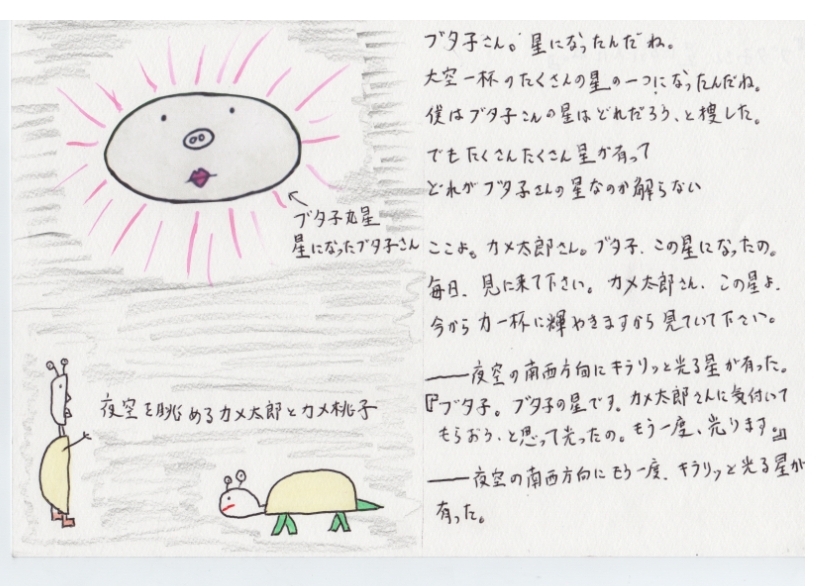 ブタ子さん。星になったんだね。
大空一杯のたくさんの星の一つになったんだね。
僕はブタ子さんの星はどれだろう、と捜した。
でもたくさんたくさん星が有って
どれがブタ子さんの星なのか解らない
ブタ子丸星
星になったブタ子さん
ここよ。カメ太郎さん。ブタ子、この星になったの。
毎日、見に来て下さい。カメ太郎さん、この星よ。
今から力一杯に輝やきますから見ていて下さい。
――夜空の南西方向にキラリッと光る星が有った。
『ブタ子。ブタ子の星です。カメ太郎さんに気付いて
もらおう、と思って光ったの。もう一度、光ります。』
――夜空の南西方向にもう一度、キラリッと光る星が
有った。
夜空を眺めるカメ太郎とカメ桃子